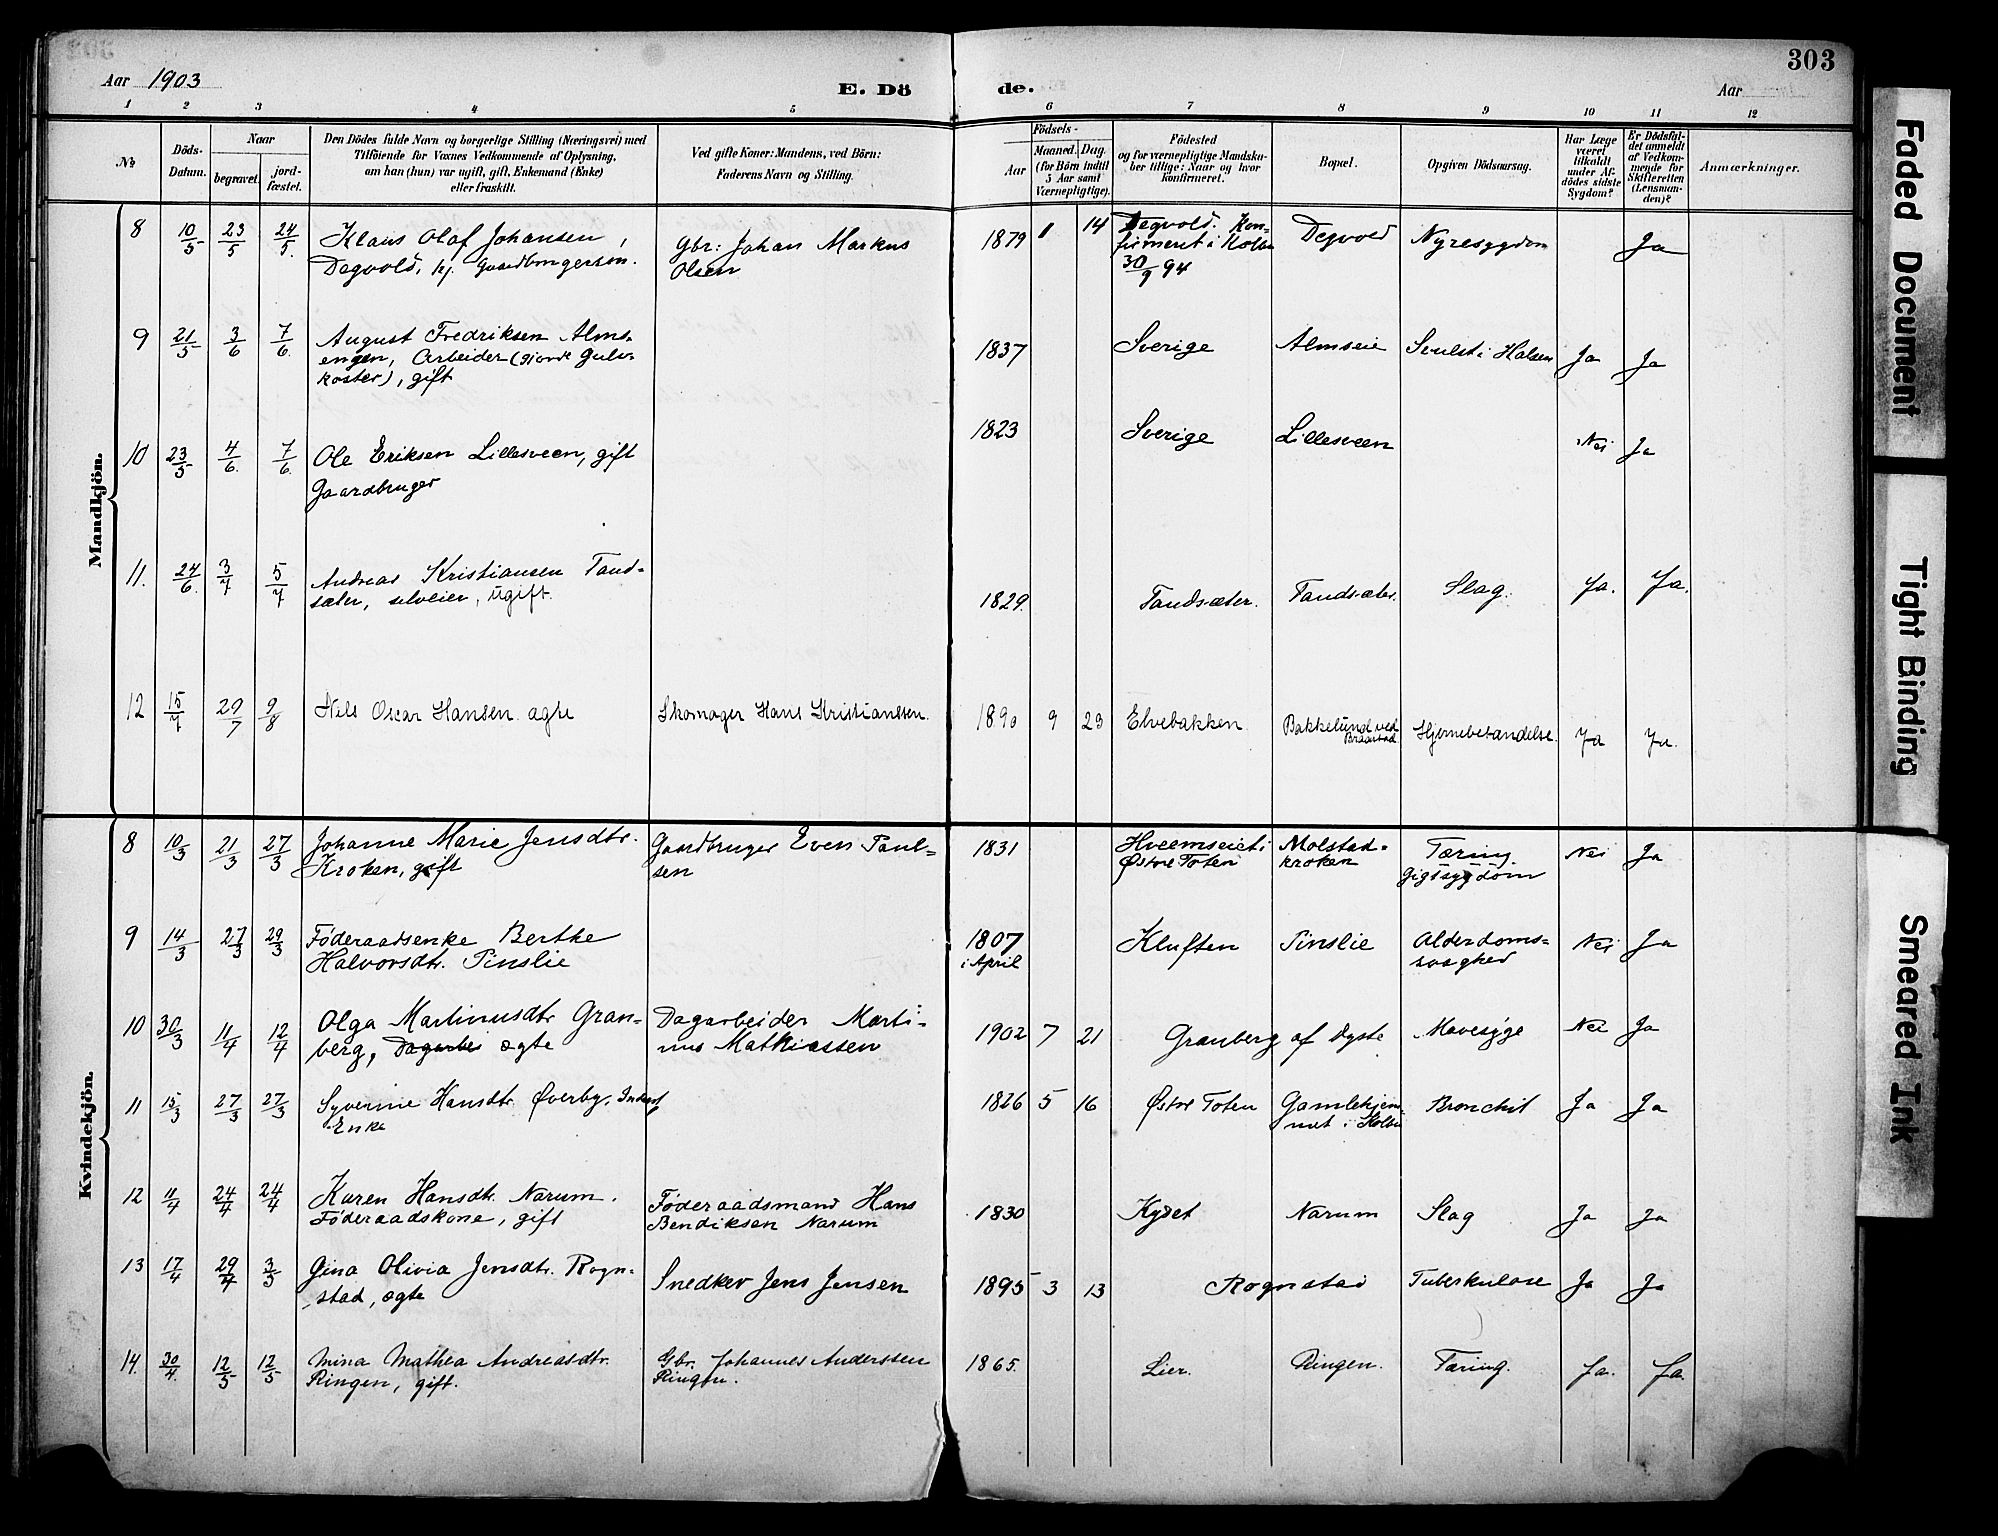 303
Aar 1903
E. Dö
de.
Aar
1 2 3 4 5 6 7 8 9 10 11 12
№
Döds-
Datum.
Naar
begravet.
jord-
fæstet.
Den Dödes fulde Navn og borgerlige Stilling (Næringsvei) med
Tilföiende for Voxnes Vedkommende af Oplysning,
om han (hun) var ugift, gift, Enkemand (Enke)
eller fraskilt.
Ved gifte Koner: Mandens, ved Börn:
Faderens Navn og Stilling.
Födsels-
Aar
Maaned.
Dag.
(for Börn indtil
5 Aar samt
Værnepligtige).
Födested
og for værnepligtige Mandska-
ber tillige: Naar og hvor
konfirmeret.
Bopæl.
Opgiven Dödsaarsag.
Har Læge
været
tilkaldt
under Af-
dödes sidste
Sygdom?
Er Dödsfal-
det anmeldt
af Vedkom-
mende for
Skifteretten
(Lensman-
den)?
Anmærkninger.
Mandkjön.
8 10/5 23/5 24/5. Klaus Olaf Johansen, Gbr: Johan Markus 1879 1 14 Degvold. Kon- Degvold Nyresygdom Ja
Degvold, Kj. Gaardbrugersøn. Olsen firmeret i Kolbu
30/9 94
9 21/5 3/6 7/6. August Fredriksen Alms- 1837 Sverige Almseie Svulst i Halsen Ja Ja
engen, Arbeider (gjorde Gulv-
koster), gift
10 23/5 4/6. 7/6. Ole Eriksen Lillesveen, gift 1823 Sverige Lillesveen Nei Ja
Gaardbruger
11. 24/6. 3/7 5/7 Andreas Kristiansen Tand- 1829. Tandsæter. Tandsæter. Slag. Ja. Ja.
sæter, selveier, ugift.
12 15/7 29/7 9/8 Nils Oscar Hansen ægte Skomager Hans Kristianssen. 1890 9 23 Elvebakken Bakkelund ved Hjernebetændelse. Ja Ja.
Braastad
Kvindekjön.
8 10/3 21/3 27/3 Johanne Marie Jensdtr. Gaardbruger Even Paul- 1831 Hveemseiet i Molstad- Tæring. Nei Ja
Kroken, gift sen Østre Toten kroken Gigtsygdom
9 14/3 27/3 29/3 Føderaadsenke Berthe 1807 Kluften Tinslie Alderdoms- Nei Ja
Halvorsdtr. Tinslie i April svaghed
10 30/3 11/4 12/4 Olga Martinusdtr Gran- Dagarbeider Marti- 1902 7 21 Granberg af Dyste Mavesyge Nei Ja
berg, Dagarbei ægte nus Mathiassen
11 15/3 27/3 27/3 Syverine Hansdtr. Øverby, Inderst 1826 5 16 Østre Toten Gamlehjem- Bronchit Ja Ja
Enke met i Kolbu
12 11/4 24/4 24/4 Karen Hansdtr. Narum. Føderaadsmand Hans 1830 Kyset Narum Slag Ja Ja
Føderaadskone, gift Bendiksen Narum
13 17/4 29/4 3/5 Gina Olivia Jensdtr. Rogn- Snedker Jens Jensen 1895 3 13 Rognstad Tuberkulose Ja Ja
stad, ægte
14. 30/4. 12/5 12/5 Mina Mathea Andreasdtr. Gbr. Johannes Anderssen 1865. Lier. Ringen. Tæring. Ja. Ja.
Ringen, gift. Ringen.
Faded Document
Tight Binding
Smeared Ink